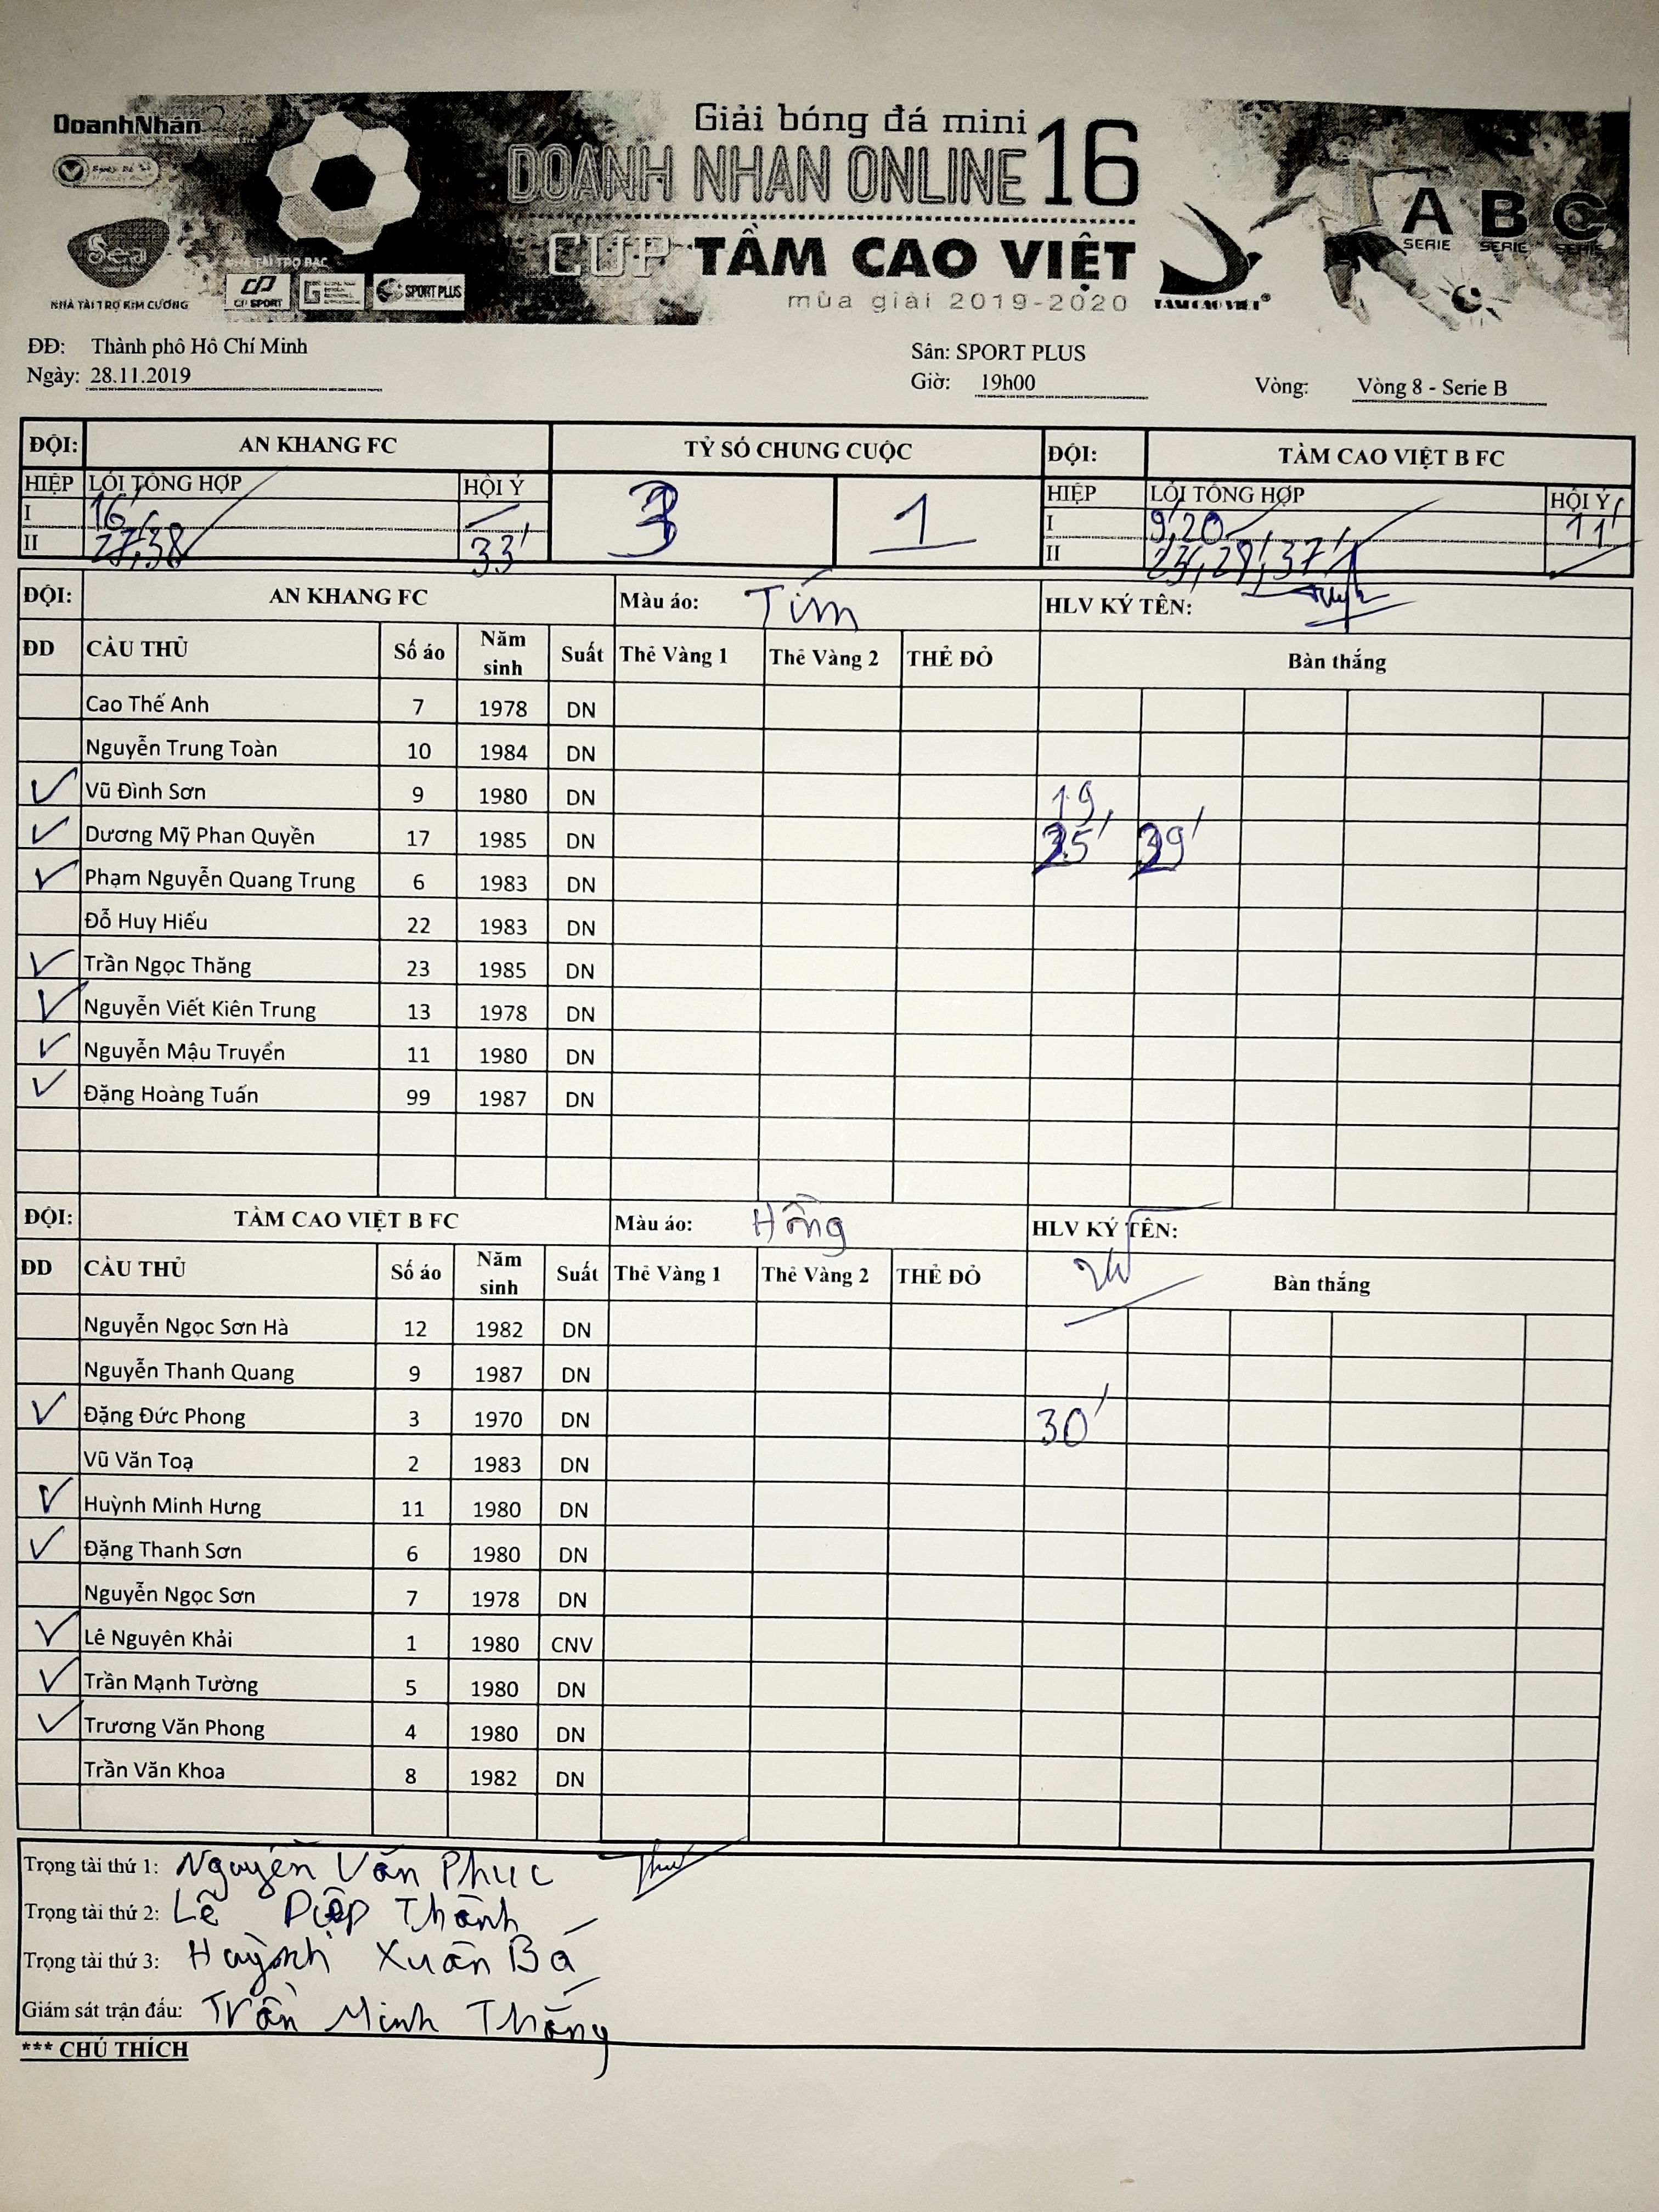 DoanhNhân
Giải bóng đá mini
DOANH NHAN ONLINE 16
CUP TẦM CAO VIỆT
mùa giải 2019-2020
A B C
SERIE SERIE SERIE
NHÀ TÀI TRỢ BẠC
NHÀ TÀI TRỢ KIM CƯƠNG
CP SPORT
SPORT PLUS
TẦM CAO VIỆT®
ĐĐ: Thành phố Hồ Chí Minh
Sân: SPORT PLUS
Ngày: 28.11.2019
Giờ: 19h00
Vòng: Vòng 8 - Serie B
ĐỘI: AN KHANG FC TỶ SỐ CHUNG CUỘC ĐỘI: TẦM CAO VIỆT B FC
HIỆP LỖI TỔNG HỢP HỘI Ý 3 1 HIỆP LỖI TỔNG HỢP HỘI Ý
I 16' I 9', 20 11'
II 27', 38' 33' II 29', 37'
ĐỘI: AN KHANG FC Màu áo: Tím HLV KÝ TÊN:
ĐD CẦU THỦ Số áo Năm sinh Suất Thẻ Vàng 1 Thẻ Vàng 2 THẺ ĐỎ Bàn thắng
Cao Thế Anh 7 1978 DN
Nguyễn Trung Toàn 10 1984 DN
✓ Vũ Đình Sơn 9 1980 DN 19,
✓ Dương Mỹ Phan Quyền 17 1985 DN
✓ Phạm Nguyễn Quang Trung 6 1983 DN
Đỗ Huy Hiếu 22 1983 DN
✓ Trần Ngọc Thăng 23 1985 DN
✓ Nguyễn Viết Kiên Trung 13 1978 DN
✓ Nguyễn Mậu Truyển 11 1980 DN
✓ Đặng Hoàng Tuấn 99 1987 DN
ĐỘI: TẦM CAO VIỆT B FC Màu áo: Hồng HLV KÝ TÊN:
ĐD CẦU THỦ Số áo Năm sinh Suất Thẻ Vàng 1 Thẻ Vàng 2 THẺ ĐỎ Bàn thắng
Nguyễn Ngọc Sơn Hà 12 1982 DN
Nguyễn Thanh Quang 9 1987 DN
✓ Đặng Đức Phong 3 1970 DN 30'
Vũ Văn Toạ 2 1983 DN
✓ Huỳnh Minh Hưng 11 1980 DN
✓ Đặng Thanh Sơn 6 1980 DN
Nguyễn Ngọc Sơn 7 1978 DN
✓ Lê Nguyên Khải 1 1980 CNV
✓ Trần Mạnh Tường 5 1980 DN
✓ Trương Văn Phong 4 1980 DN
Trần Văn Khoa 8 1982 DN
Trọng tài thứ 1: Nguyễn Văn Phuc
Trọng tài thứ 2: Lê Diệp Thành
Trọng tài thứ 3: Huỳnh Xuân Bá
Giám sát trận đấu: Trần Minh Thắng
*** CHÚ THÍCH